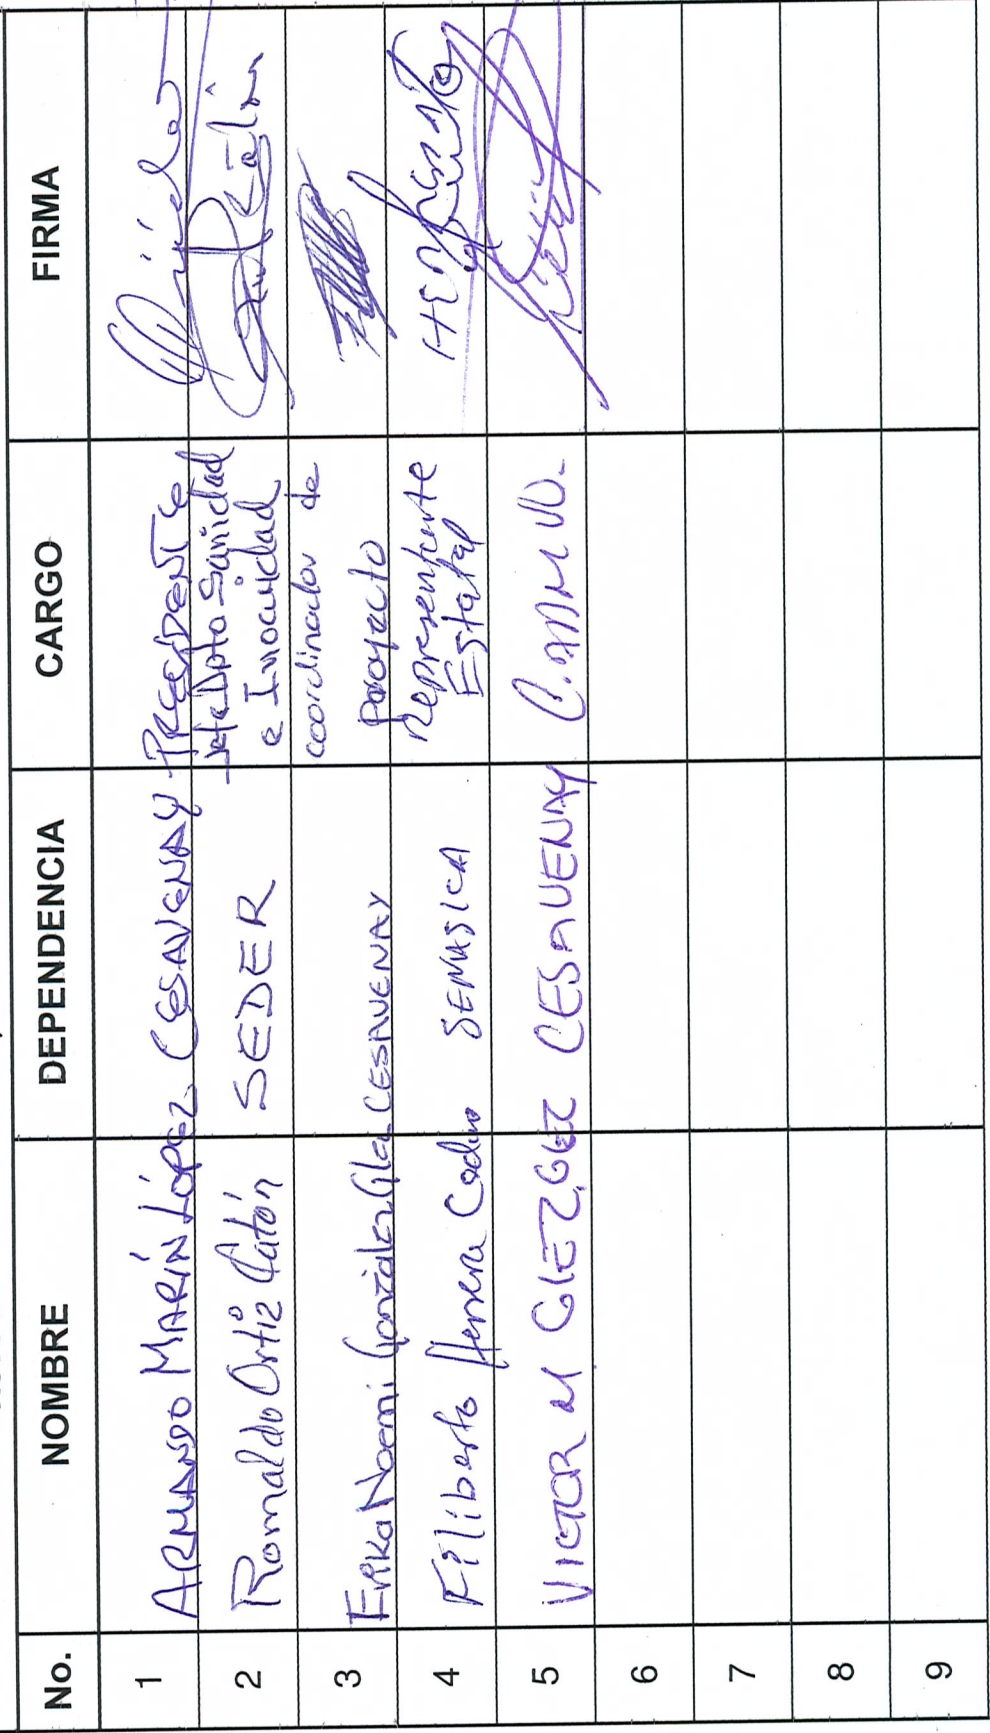 No. NOMBRE DEPENDENCIA CARGO FIRMA
1 ARMANDO MARÍN LÓPEZ. CESAVENAY PRESIDENTE
2 Romaldo Ortiz Catón SEDER Jefe Dpto Sanidad
e Inocuidad
3 Erika Noemi González Glez CESAVENAY coordinador de
proyecto
4 Filiberto Herrera Codina SENASICA Representante
Estatal
5 VICTOR M GLEZ, GLEZ CESAVENAY
6
7
8
9